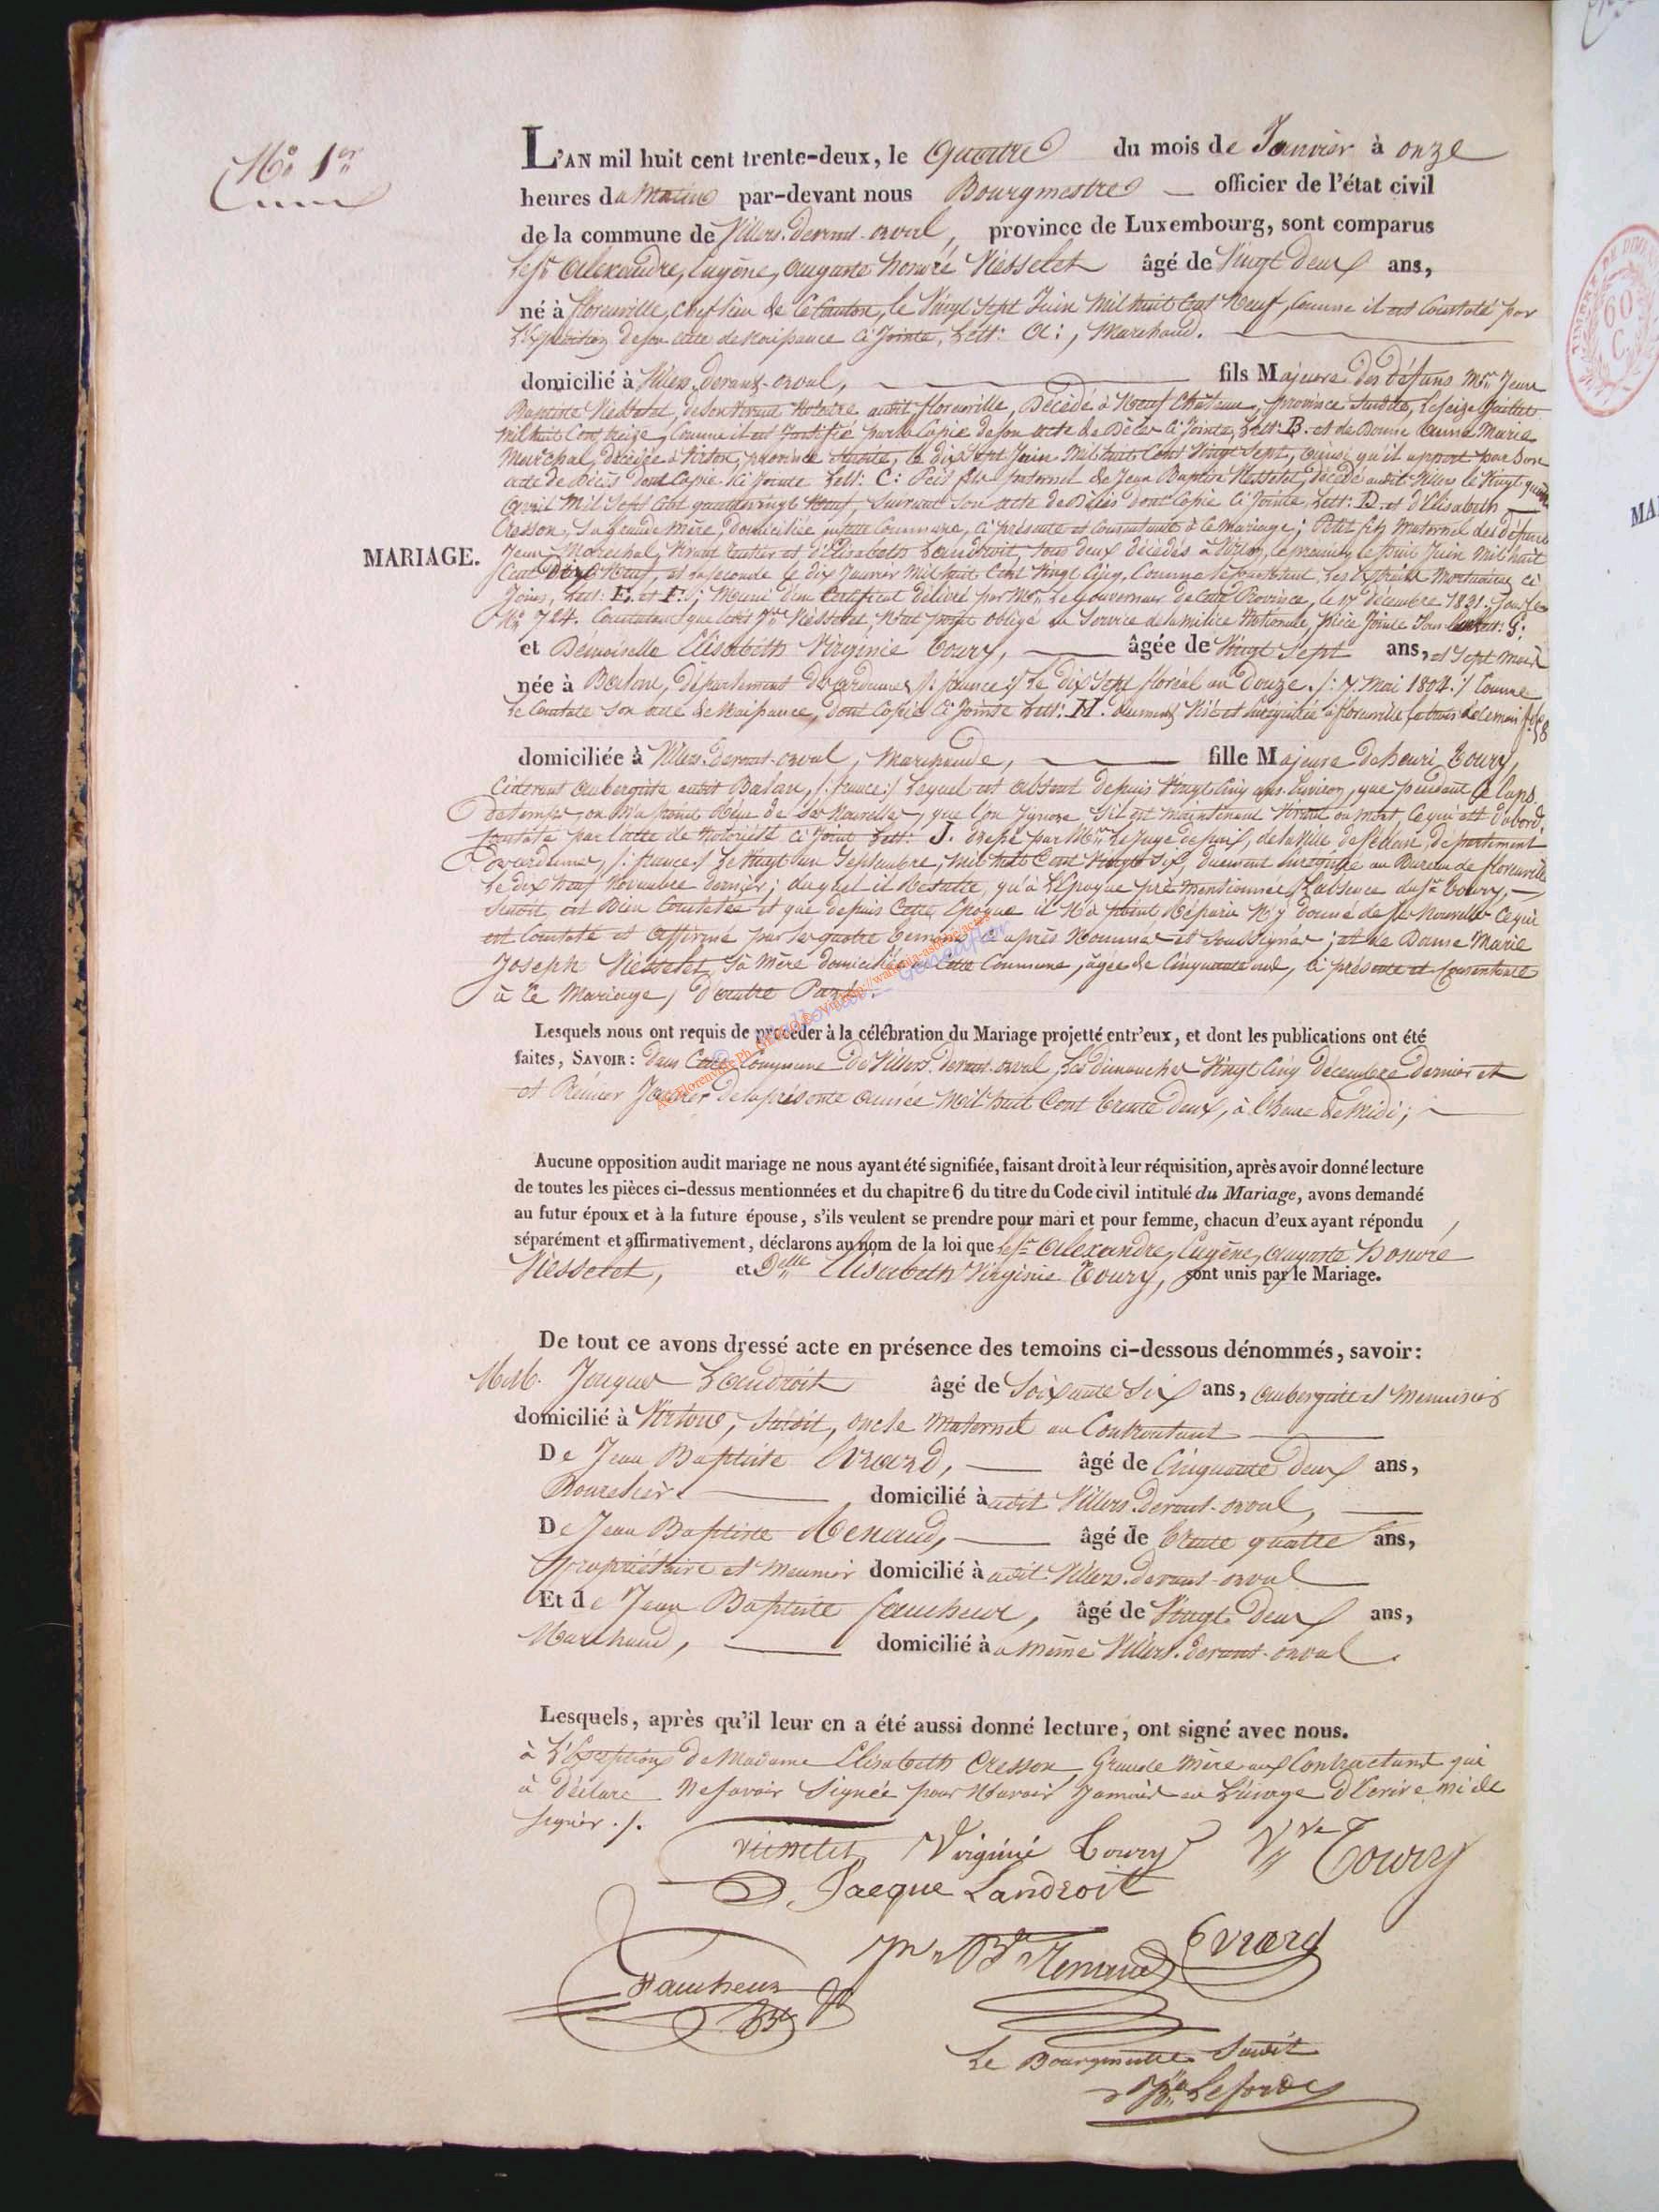 N.o 1.er
L'AN mil huit cent trente-deux, le Quatre du mois de Janvier à onze
heures du Matin par-devant nous Bourgmestre officier de l'état civil
de la commune de Villers-devant-orval, province de Luxembourg, sont comparus
Le Sr. Alexandre, Eugène, Auguste honoré Nesselet âgé de Vingt Deux ans,
né à florenville, Chef lieu de Ce Canton, le Vingt Sept Juin Mil huit Cent Neuf, Comme il est Constaté par
L'Expédition de son acte de Naissance Ci Jointe, Lett: A:, Marchand.
domicilié à Villers-devant-orval, fils Majeur Des défuns Mr. Jean
Baptiste Nesselet, de son Vivant Notaire audit florenville, Décédé à Neuf Château, province Susdite, le seize Juillet
Mil huit Cent treize, Comme il est Justifié par la Copie de son acte de Décès Ci Jointe, Lett: B. et de Dame Anne Marie
Maréchal, décédée à Virton, province Susdite, le dix Sept Juin Mil huit Cent Vingt Sept, ainsi qu'il appert par Son
acte de Décès dont Copie Ci Jointe Lett: C: Petit fils paternel de Jean Baptiste Nesselet, décédé audit Villers le Vingt quatre
Avril Mil Sept Cent quatrevingt Neuf, Suivant Son acte de Décès dont Copie Ci Jointe, Lett: D. et d'Elisabeth
Cresson, Sa grande Mère, Domiciliée en cette Commune, Ci présente et Consentante à Ce Mariage; Petit fils Maternel des défunts
MARIAGE.
Jean Maréchal, Vivant Rentier et d'Elisabeth Landroit, tous deux décédés à Virton, le premier, le Juin Mil huit
Cent Dix Neuf, et la Seconde le dix Janvier Mil huit Cent Vingt Cinq, Comme le Les Extraits Mortuaires Ci
Joins, Lett: E. et F.; Muni d'un Certificat délivré par Mr. Le Gouverneur de Cette Province, le 17 décembre 1831. Sous le
No. 724. Constatant que ledit Sr. Nesselet, N'est point obligé au Service de la milice Nationale, pièce Jointe Sous Lett: G:
et Démoiselle Elisabeth Virginie Toury, âgée de Vingt Sept ans, et Sept Mois
née à Balan, Département des ardennes /: france :/ Le dix Sept floréal an Douze. /: 7. Mai 1804. :/ Comme
Le Constate Son acte de Naissance, dont Copie Ci Jointe Lett: H. dument Visé et Enregistrée à florenville
domiciliée à Villers-devant-orval, Marchande, fille Majeure de henri Toury,
Cidevant Aubergiste audit Balan, /: france :/ Lequel est absent depuis Vingt Cinq ans Environ, que pendant Ce laps
De temps, on N'a point Réçu de Ses Nouvelles, que l'on Ignore S'il est Maintenant Vivant ou mort, Ce qui est D'abord
Constaté par l'acte de Notoriété Ci Joint Lett: J. dressé par Mr. Le Juge de paix, de la Ville de Sédan, Département
Des ardennes, /: france :/ Le Vingt un Septembre, Mil huit Cent Vingt Six, duement Enregistré au Bureau de florenville
Le dix Neuf Novembre Dernier; duquel il Résulte, qu'à L'Epoque pré Mentionnée, L'absence du Sr. Toury,
Senoit, est Bien Constatée et que depuis Cette Epoque il N'a point Réparu N'y donné de Ses Nouvelles Ce qui
est Constaté et Affirmé par les quatre Temoins Ci après Nommés et Soussignés; et de Dame Marie
Joseph Nesselet, Sa Mère Domiciliée en Cette Commune, âgée de Cinquante ans, Ci présente et Consentante
à Ce Mariage, D'autre Part.
Lesquels nous ont requis de procéder à la célébration du Mariage projetté entr'eux, et dont les publications ont été
faites, SAVOIR: Dans Cette Commune De Villers-devant-orval, Les dimanches Vingt Cinq Décembre Dernier et
et Prémier Janvier De la présente Année Mil huit Cent Trente Deux, à L'heure De Midi;
Aucune opposition audit mariage ne nous ayant été signifiée, faisant droit à leur réquisition, après avoir donné lecture
de toutes les pièces ci-dessus mentionnées et du chapitre 6 du titre du Code civil intitulé du Mariage, avons demandé
au futur époux et à la future épouse, s'ils veulent se prendre pour mari et pour femme, chacun d'eux ayant répondu
séparément et affirmativement, déclarons au nom de la loi que Le Sr. Alexandre, Eugène, Auguste honoré
Nesselet, et Delle Elisabeth Virginie Toury, sont unis par le Mariage.
De tout ce avons dressé acte en présence des temoins ci-dessous dénommés, savoir:
MM. Jacques Landroit âgé de Soixante Six ans, Aubergiste et Menuisier
domicilié à Virton, Susdit, oncle Maternel au Contractant
De Jean Baptiste Evrard, âgé de Cinquante Deux ans,
Bourelier domicilié à audit Villers-devant-orval,
De Jean Baptiste Renaud, âgé de Trente quatre ans,
Propriétaire et Meunier domicilié à audit Villers-devant-orval
Et de Jean Baptiste faucheur, âgé de Vingt Deux ans,
Marchand, domicilié à au même Villers-devant-orval.
Lesquels, après qu'il leur en a été aussi donné lecture, ont signé avec nous.
à L'Exception De Madame Elisabeth Cresson, Grande Mère au Contractant qui
à Déclaré Ne Savoir Signée pour N'avoir Jamais eu L'usage D'Ecrire ni de
Signer ./.
Virginie Toury Vve Toury
Jacque Landroit
Jn Bte Renaud Evrard
Faucheur
Le Bourgmestre Susdit